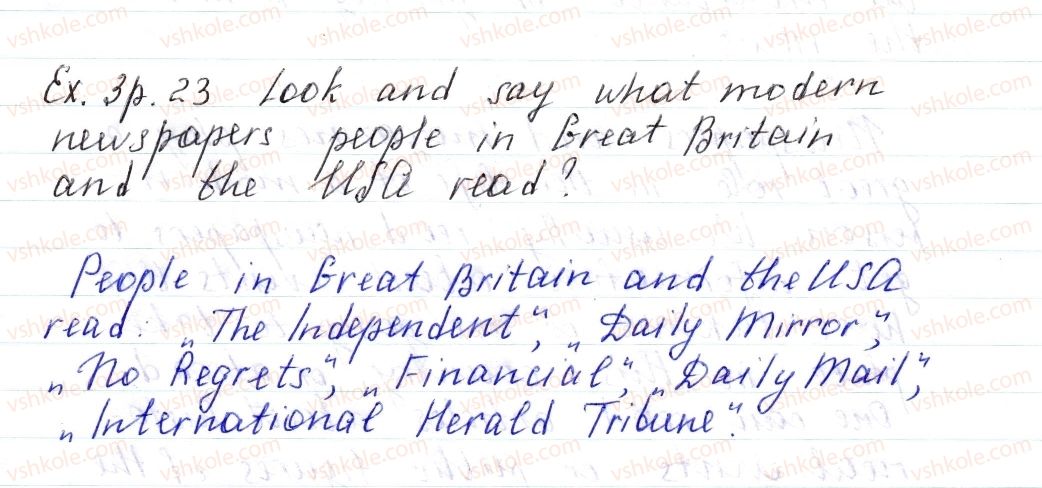 Ex. 3 p. 23 Look and say what modern
newspapers people in Great Britain
and the USA read?
People in Great Britain and the USA
read: „The Independent“, „Daily Mirror“,
„No Regrets“, „Financial“, „Daily Mail“,
„International Herald Tribune“.